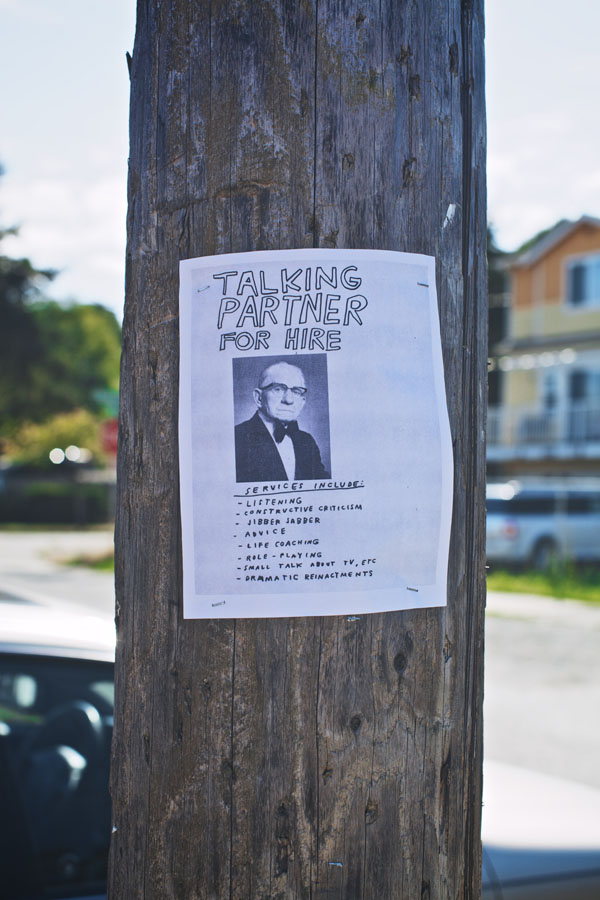 TALKING
PARTNER
FOR HIRE
SERVICES INCLUDE:
- LISTENING
- CONSTRUCTIVE CRITICISM
- JIBBER JABBER
- ADVICE
- LIFE COACHING
- ROLE-PLAYING
- SMALL TALK ABOUT TV, ETC
- DRAMATIC REINACTMENTS